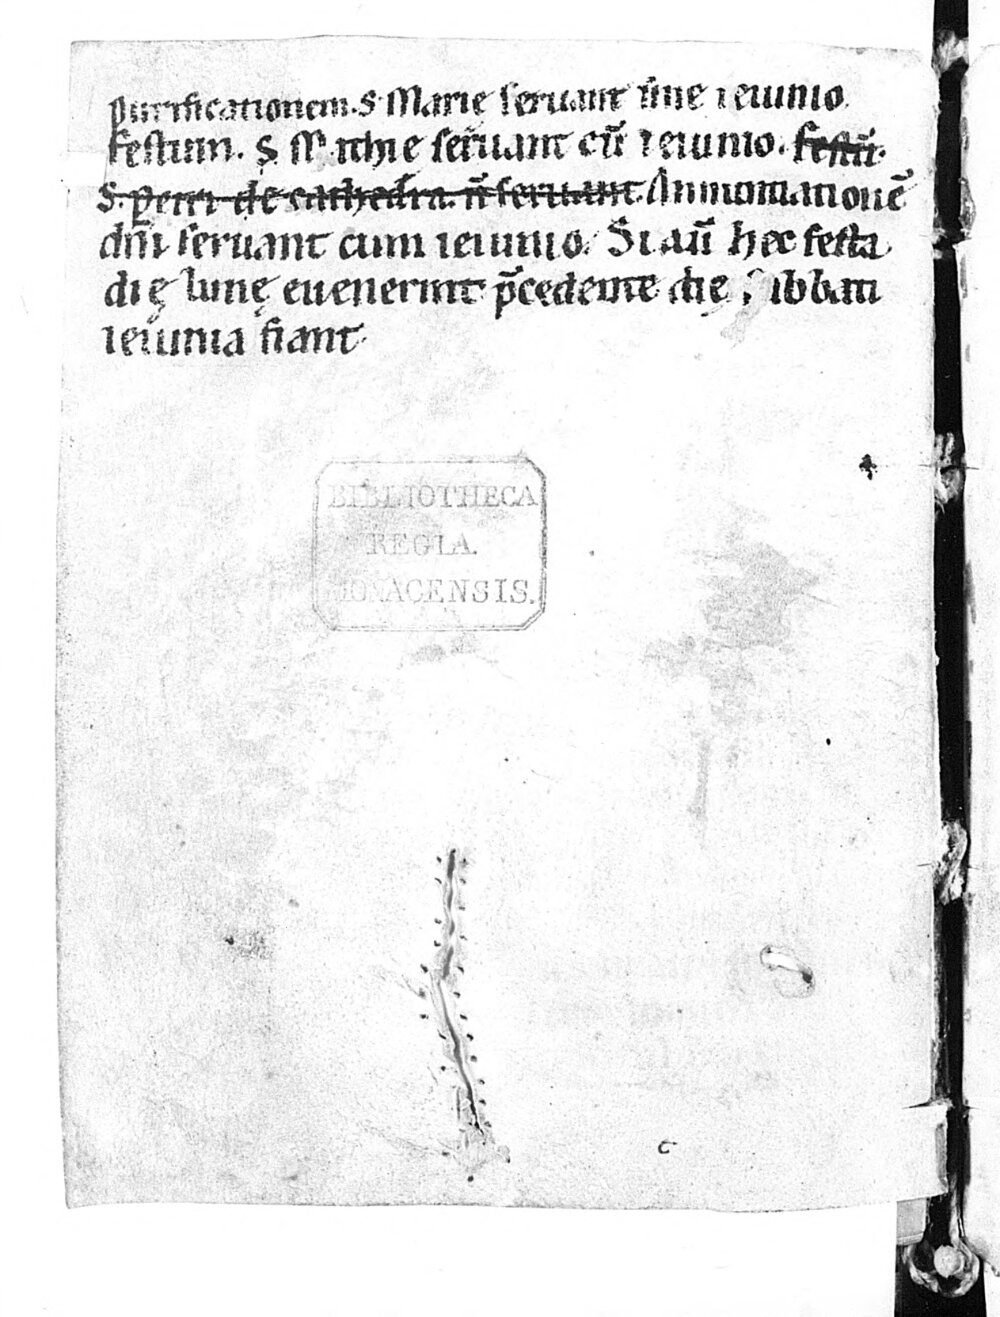 purificationem. S. Marię seruant sine ieiunio.
Festum. S. Mathię seruant cū ieiunio. Festū.
S. petri de cathedra. n̄ seruant. Annuntiationē
dn̄i seruant cum ieiunio. Si aū hec festa
dię lunę euenerint p̄cedente dię sabbati
ieiunia fiant.
BIBLIOTHECA
REGIA
MONACENSIS.
c